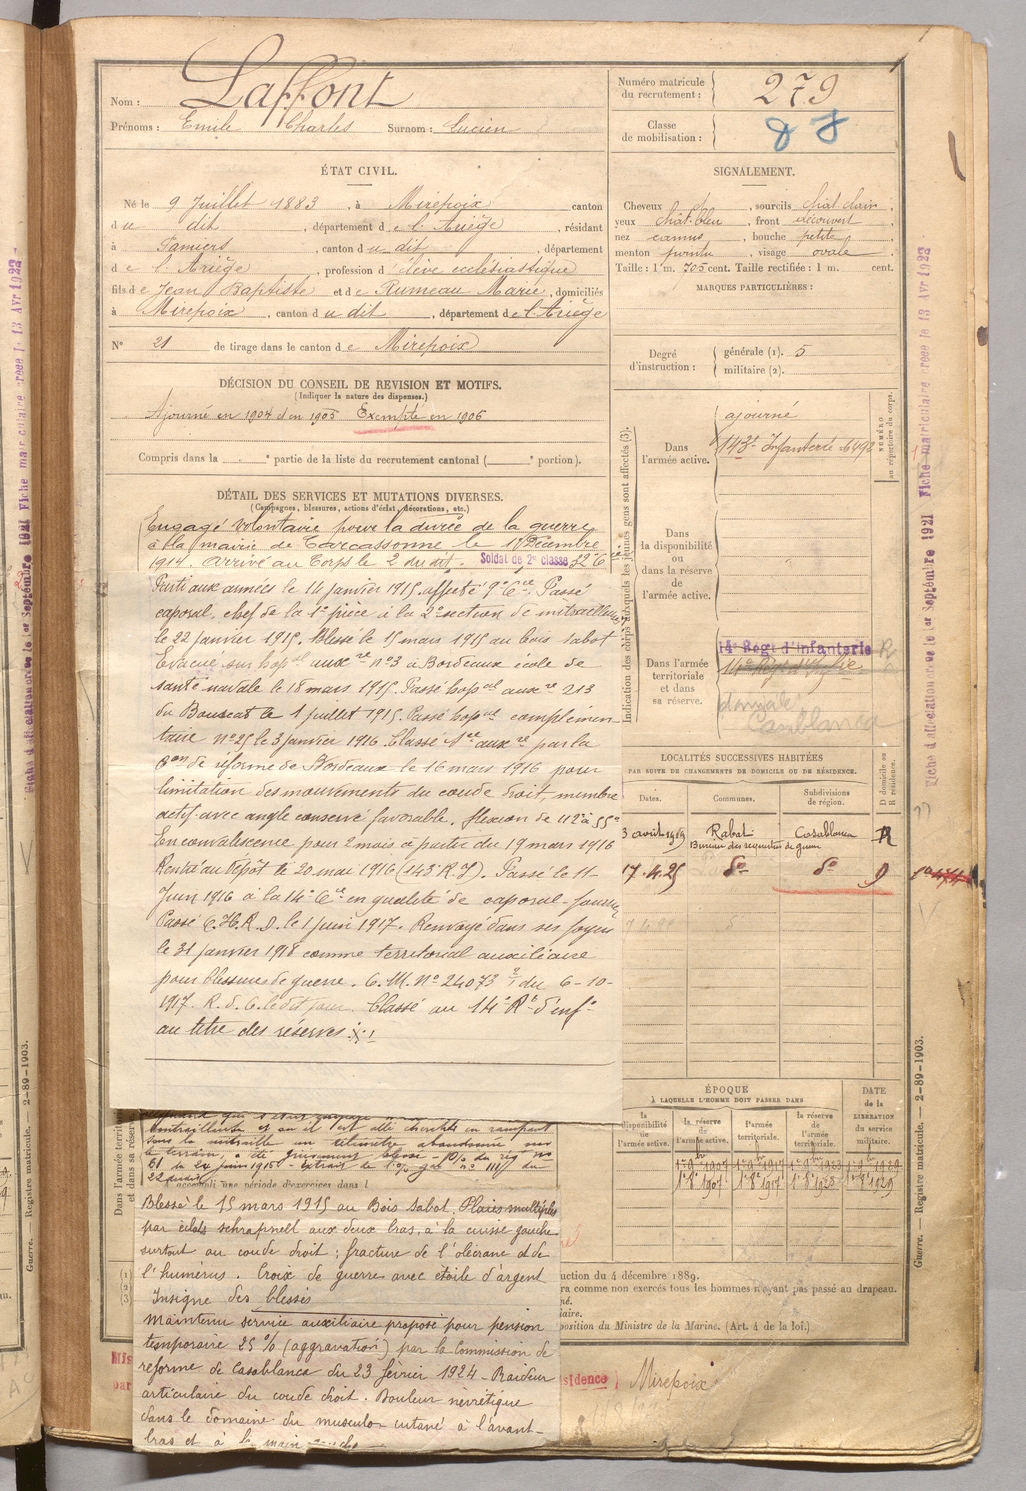 Nom : Laffont
Prénoms : Emile Charles Surnom : Lucien
Numéro matricule du recrutement : 279
Classe de mobilisation :
ÉTAT CIVIL.
Né le 9 Juillet 1883, à Mirepoix canton
du dit, département de l'Ariège, résidant
à Pamiers, canton du dit, département
de l'Ariège, profession d'élève ecclésiastique
fils de Jean Baptiste et de Rumeau Marie, domiciliés
à Mirepoix, canton du dit, département de l'Ariège
N° 21 de tirage dans le canton de Mirepoix
DÉCISION DU CONSEIL DE REVISION ET MOTIFS.
(Indiquer la nature des dispenses.)
Ajourné en 1904 et en 1905 Exempté en 1906
Compris dans la e partie de la liste du recrutement cantonal ( e portion).
DÉTAIL DES SERVICES ET MUTATIONS DIVERSES.
(Campagnes, blessures, actions d'éclat, décorations, etc.)
Engagé volontaire pour la durée de la guerre
à la mairie de Carcassonne le Décembre
1914. Arrivé au Corps le 2 du dit. Soldat de 2e classe
Parti aux armées le 14 janvier 1915, affecté 9e Cie. Passé
caporal, chef de la 1e pièce à la 2e section de mitrailleuses
le 22 janvier 1915, blessé le 15 mars 1915 au bois Sabot
Evacué sur hopal auxre n°3 à Bordeaux école de
santé navale le 18 mars 1915. Passé hopal auxre 213
du Bouscat le 1 juillet 1915. Passé hopal complémen
taire n°25 le 3 janvier 1916. Classé sce auxre par la
Con de réforme de Bordeaux le 16 mars 1916 pour
limitation des mouvements du coude droit, membre
actif avec angle conservé favorable, flexion de 112° à 55°
En convalescence pour 2 mois à partir du 19 mars 1916
Rentré au dépôt le 20 mai 1916 (143e R.I). Passé le 11-
Juin 1916 à la 14e Cie en qualité de caporal-fourrier
Passé C.H.R. D. le 1 juin 1917. Renvoyé dans ses foyers
le 31 janvier 1918 comme territorial auxiliaire
pour blessure de guerre. C.M. N° 24073 du 6-10-
1917. R.d.C. le dit jour. Classé au 14e Rt d'Infie
au titre des réserves
mitrailleuse et
sous la mitraille un télémètre abandonné sur
le terrain, a été grièvement blessé -
61 du 24 juin 1915 - extrait de
22
accompli une période d'exercices dans l
Blessé le 15 mars 1915 au Bois Sabot. Plaies multiples
par éclats schrapnell aux deux bras, à la cuisse gauche
surtout au coude droit ; fracture de l'olécrane et de
l'humérus. Croix de guerre avec étoile d'argent
Insigne des blessés
Maintenu service auxiliaire proposé pour pension
temporaire 25 % (aggravation) par la Commission de
réforme de Casablanca du 23 février 1924 - Raideur
articulaire du coude droit. Douleur névritique
dans le domaine du musculo cutané à l'avant-
bras et à la main
SIGNALEMENT.
Cheveux, sourcils chat. clair,
yeux chât. bleu, front découvert
nez camus, bouche petite,
menton pointu, visage ovale.
Taille : 1 m. 705 cent. Taille rectifiée : 1 m. cent.
MARQUES PARTICULIÈRES :
Degré d'instruction : générale (1). 5
militaire (2).
Indication des corps auxquels les jeunes gens sont affectés (3).
NUMÉRO au répertoire du corps.
Dans l'armée active.
ajourné
143e Infanterie 6492
Dans la disponibilité ou dans la réserve de l'armée active.
Dans l'armée territoriale et dans sa réserve.
14e Régt d'Infanterie
14e Régt d'Infie
domicilié
Casablanca
LOCALITÉS SUCCESSIVES HABITÉES
PAR SUITE DE CHANGEMENTS DE DOMICILE OU DE RÉSIDENCE.
Dates. Communes. Subdivisions de région. D domicile ou R résidence.
3 août 1919 Rabat Casablanca R
17.4.25 do do D
ÉPOQUE
À LAQUELLE L'HOMME DOIT PASSER DANS
la disponibilité de l'armée active. la réserve de l'armée active. l'armée territoriale. la réserve de l'armée territoriale. DATE de la LIBÉRATION du service militaire.
1er 8e 1907 1er 8e 1917 1er 8e 1923 1er 8e 1929
uction du 4 décembre 1889.
ra comme non exercés tous les hommes n'ayant pas passé au drapeau.
position du Ministre de la Marine. (Art. 4 de la loi.)
sidence Mirepoix
Fiche d'affectation créée le 1er Septembre 1921 Fiche matriculaire créée le 13 Avr 1922
Fiche d'affectation créée le 1er Septembre 1921 Fiche matriculaire créée le 13 Avr 1922
Guerre. — Registre matricule. — 2-89-1903.
Guerre. — Registre matricule. — 2-89-1903.